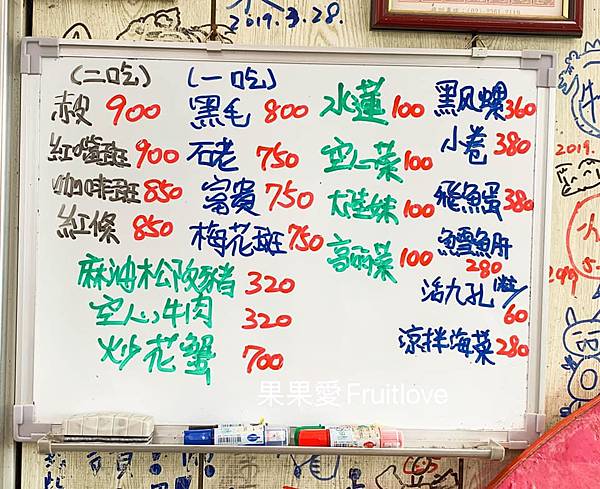 2019.3.28.
(二吃)
赤皮 900
紅嘴斑 900
咖啡斑 850
紅條 850
(一吃)
黑毛 800
石老 750
富貴 750
梅花斑 750
水蓮 100
空心菜 100
大陸妹 100
高麗菜 100
黑風螺 360
小卷 380
飛魚蛋 380
鱈魚肝 280
活九孔
60
涼拌海菜 280
麻油松阪豬 320
空心牛肉 320
炒花蟹 700
果果愛 Fruitlove
2019.